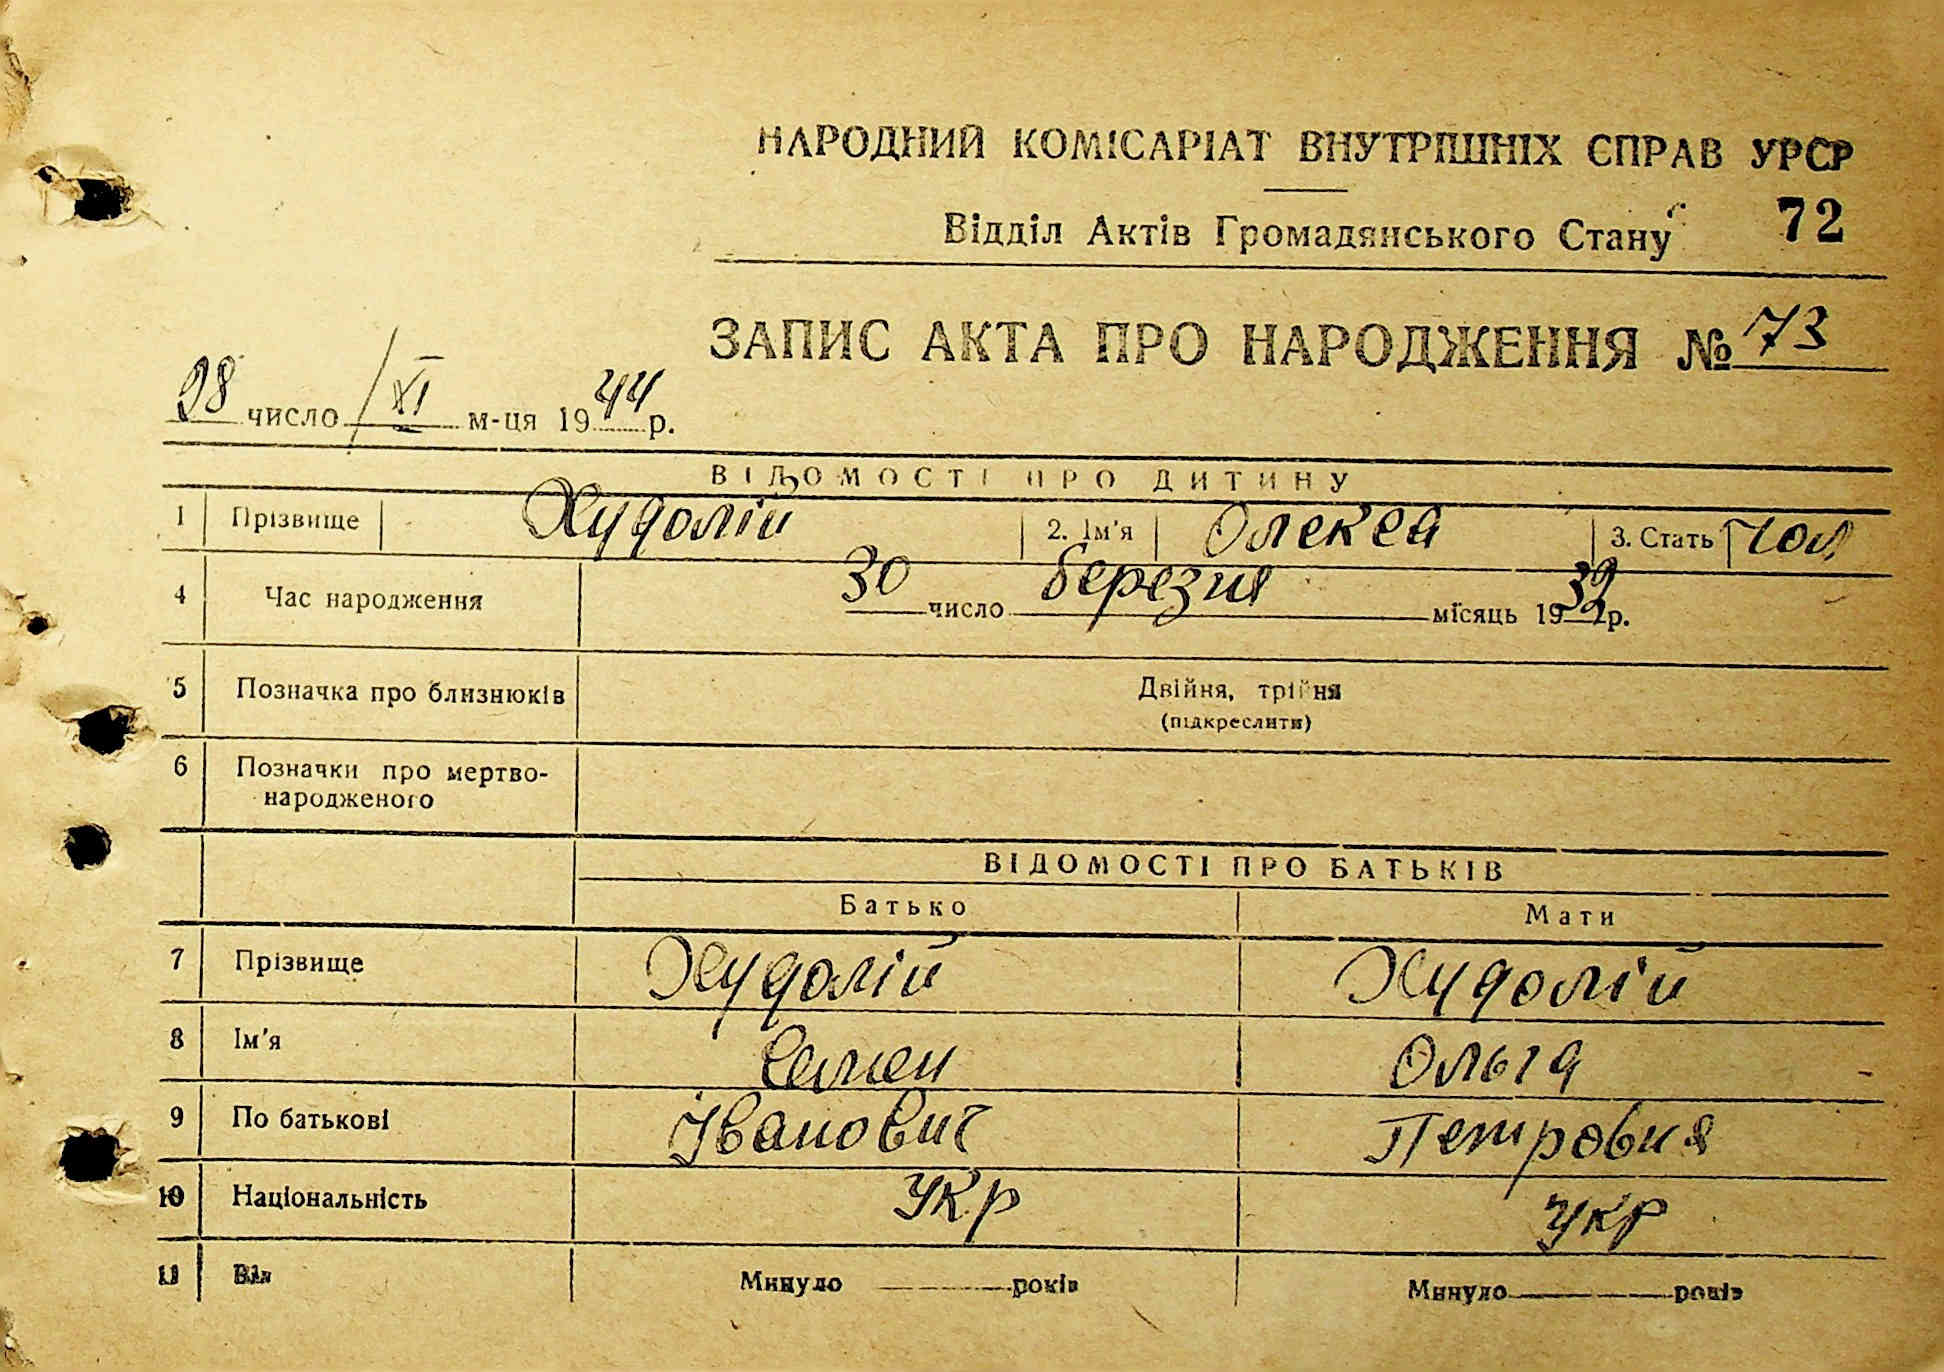 НАРОДНИЙ КОМІСАРІАТ ВНУТРІШНІХ СПРАВ УРСР
Відділ Актів Громадянського Стану 72
ЗАПИС АКТА ПРО НАРОДЖЕННЯ № 73
28 число XI м-ця 1944 р.
ВІДОМОСТІ ПРО ДИТИНУ
1 Прізвище Худолій 2. Ім'я Олекса 3. Стать чол
4 Час народження 30 число березня місяць 1932 р.
5 Позначка про близнюків Двійня, трійня
(підкреслити)
6 Позначки про мертво-
народженого
ВІДОМОСТІ ПРО БАТЬКІВ
Батько Мати
7 Прізвище Худолій Худолій
8 Ім'я Семен Ольга
9 По батькові Іванович Петровня
10 Національність Укр Укр
11 Вік Минуло років Минуло років